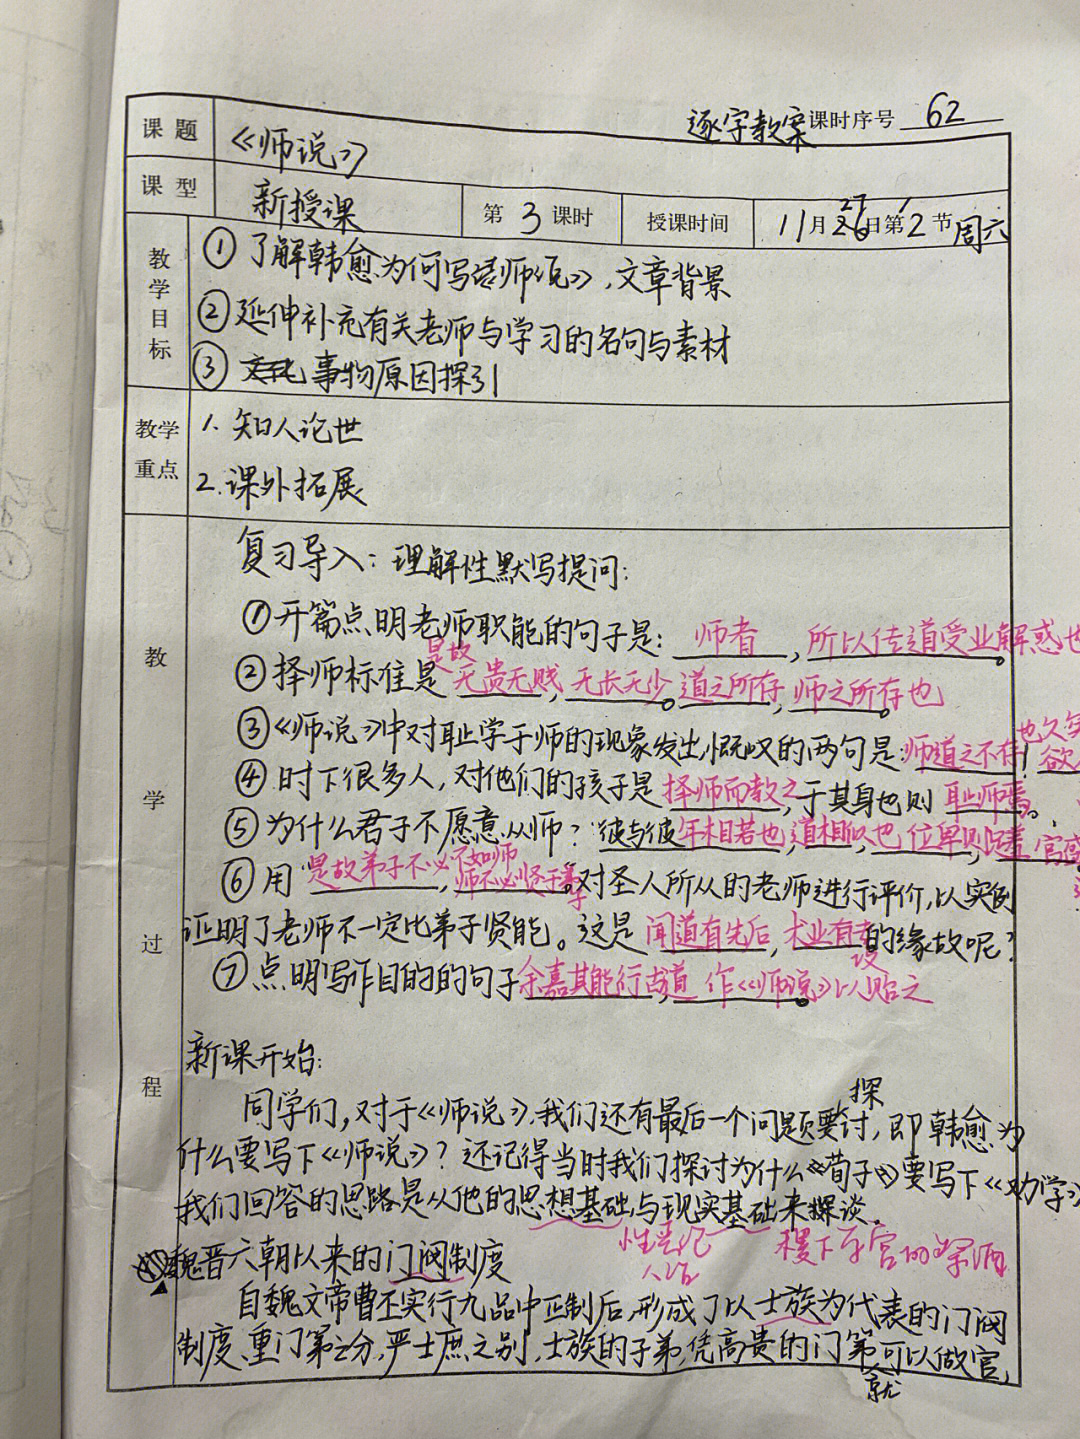 逐字教案 课时序号 62
课题 《师说》
课型 新授课 第 3 课时 授课时间 11月27日第2节 周六
教学目标
①了解韩愈为何写语《师说》,文章背景
②延伸补充有关老师与学习的名句与素材
③事物原因探引
教学重点
1. 知人论世
2. 课外拓展
教学过程
复习导入:理解性默写提问:
①开篇点明老师职能的句子是:师者,所以传道受业解惑也。
②择师标准是 是故无贵无贱,无长无少。道之所存,师之所存也。
③《师说》中对耻学于师的现象发出慨叹的两句是:师道之不存也久矣!欲
④时下很多人,对他们的孩子是择师而教之,于其身也则耻师焉。
⑤为什么君子不愿意从师?彼与彼年相若也,道相似也,位卑则足羞,官盛
⑥用"是故弟子不必不如师,师不必贤于弟子。对圣人所从的老师进行评价,以实例
证明了老师不一定比弟子贤能。这是闻道有先后,术业有专攻的缘故呢?
⑦点明写作目的的句子余嘉其能行古道,作《师说》以贻之。
新课开始:
同学们,对于《师说》,我们还有最后一个问题要探讨,即韩愈为
什么要写下《师说》?还记得当时我们探讨为什么《荀子》要写下《劝学》
我们回答的思路是从他的思想基础与现实基础来探谈。
性恶论 稷下学官的
人治
魏晋六朝以来的门阀制度
自魏文帝曹丕实行九品中正制后,形成了以士族为代表的门阀
制度,重门第之分,严士庶之别,士族的子弟,凭高贵的门第就可以做官,